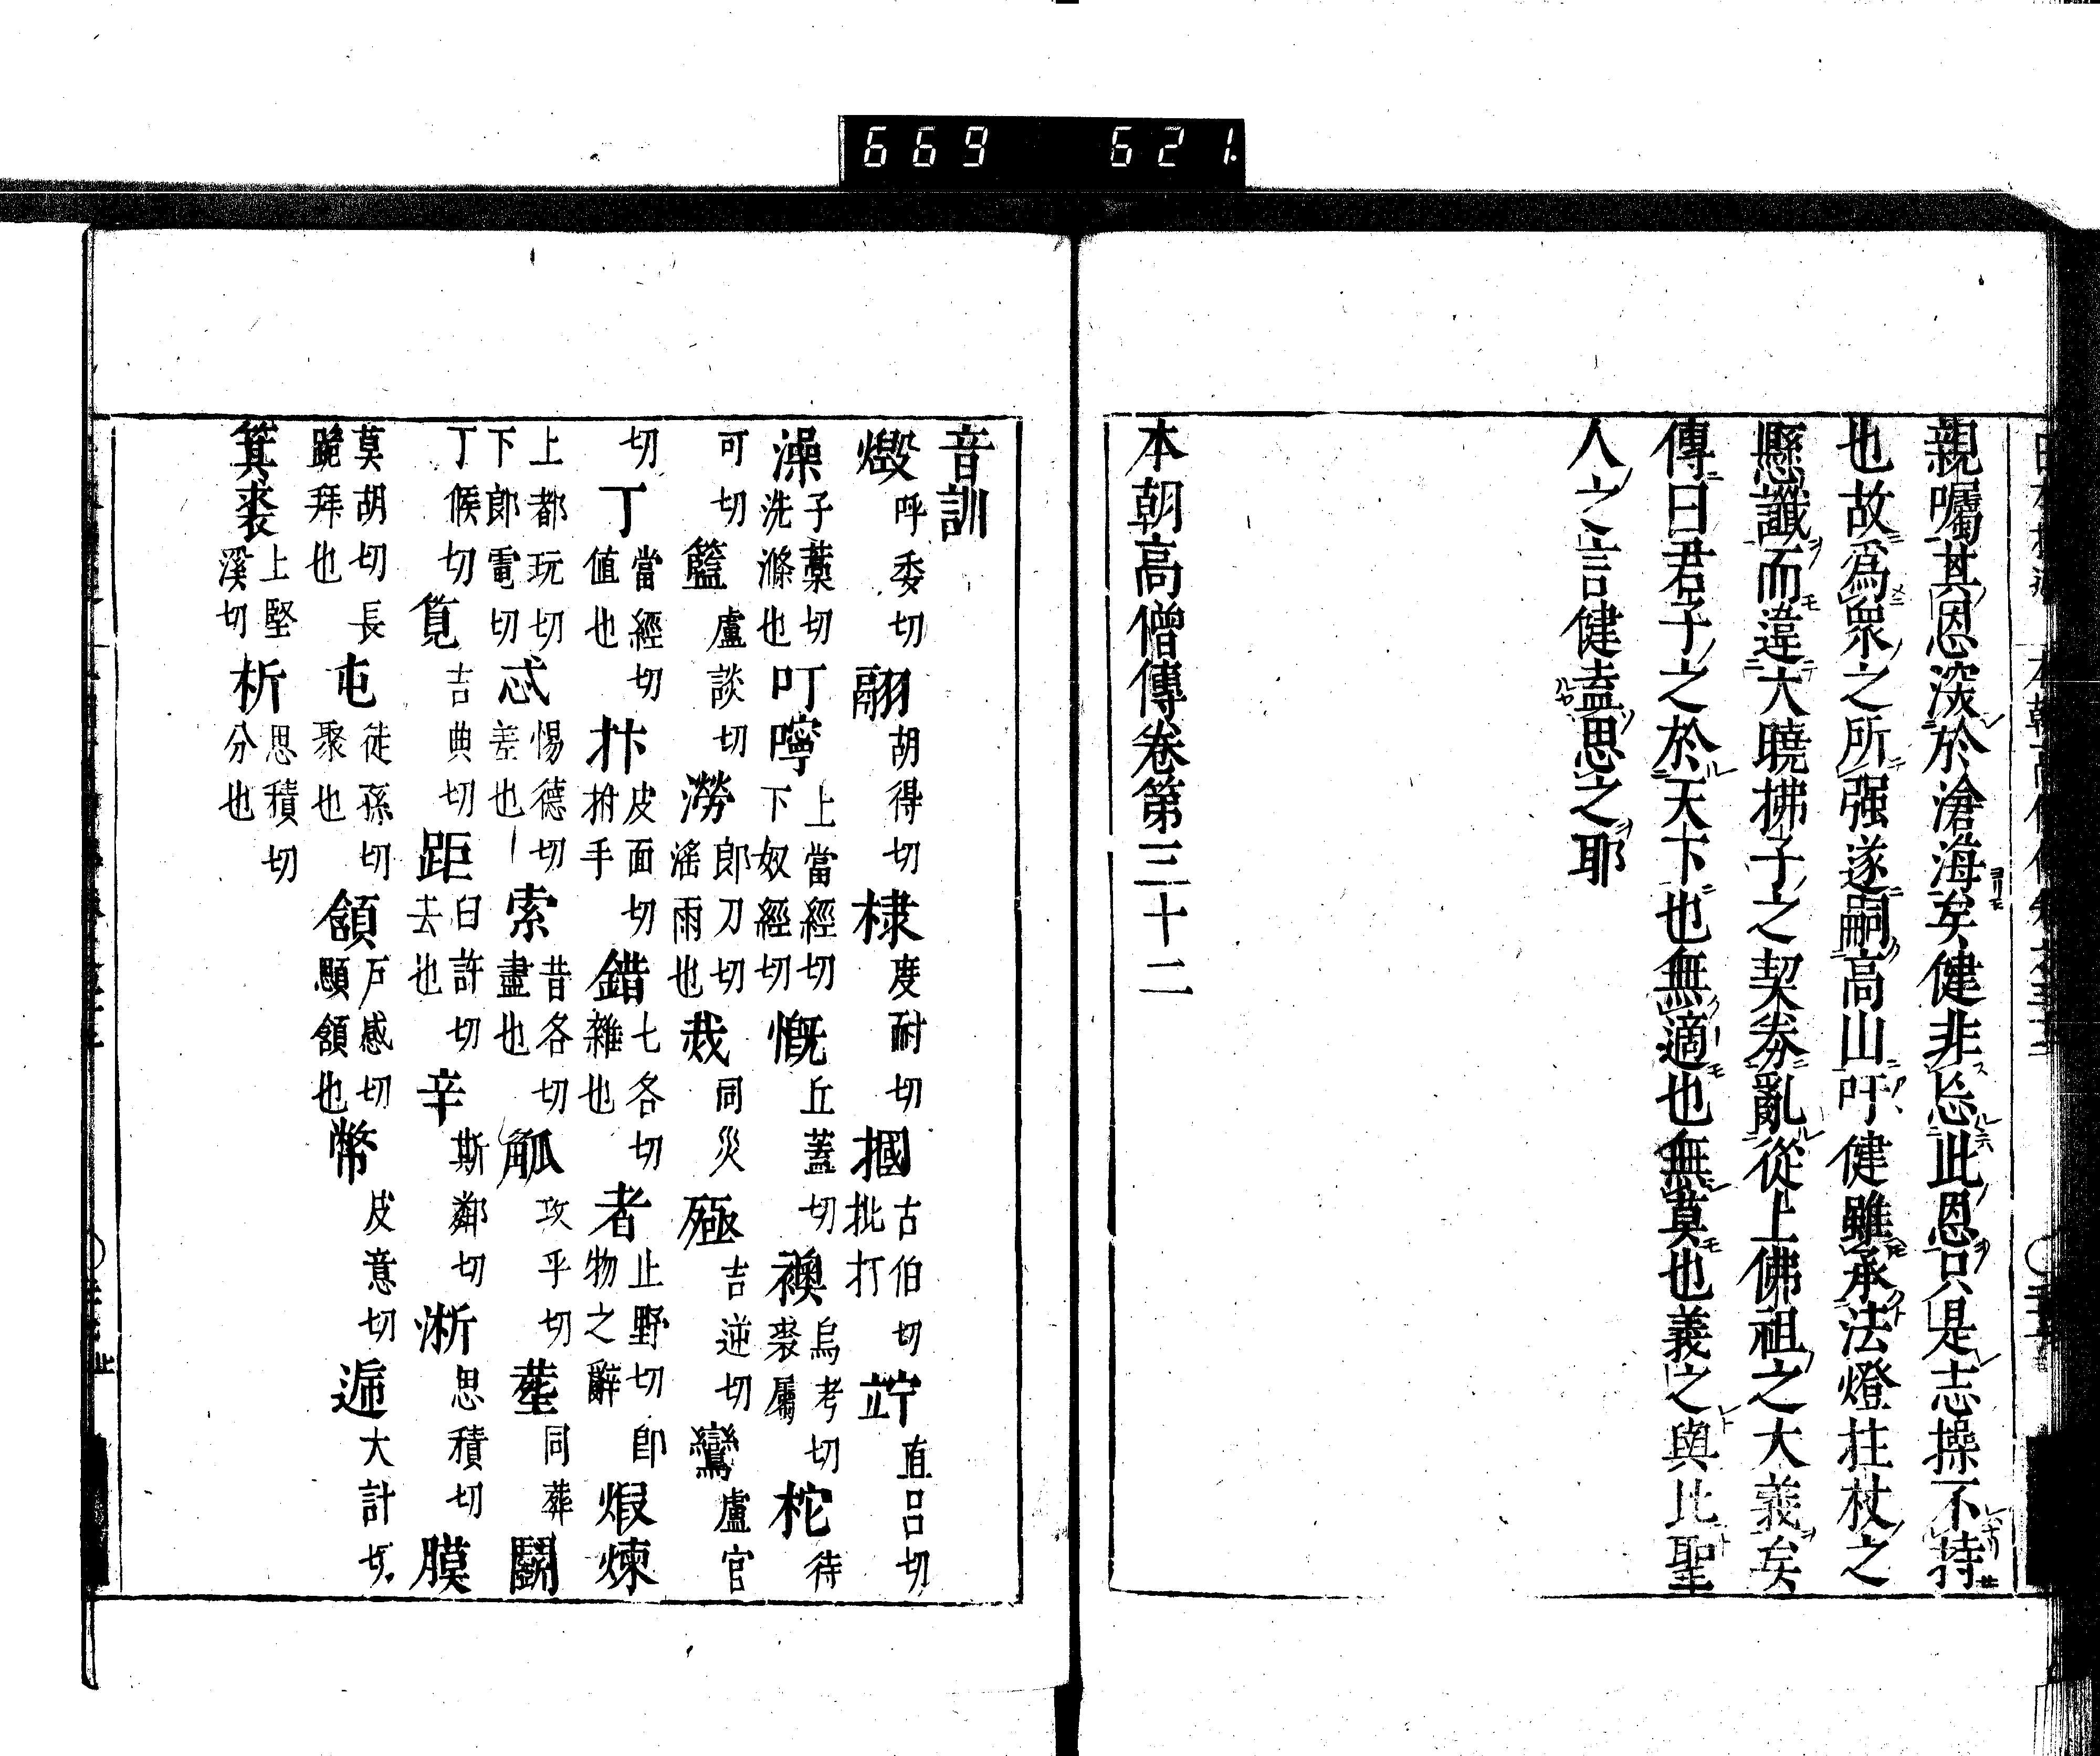 669 621.
親囑其恩深於滄海矣健非忘此恩只是志操不持
也故爲衆之所强遂嗣高山吁健雖承法燈拄杖之
懸讖而違大曉拂子之契券亂從上佛祖之大義矣
傳曰君子之於天下也無適也無莫也義之與比聖
人之言健盍思之耶
本朝高僧傳卷第三十二
音訓
燬呼委切 翮胡得切 棣度耐切 摑古伯切批打 竚直呂切
澡子藁切洗滌也 叮嚀上當經切下奴經切 慨丘蓋切 襖烏考切裘屬 柁待
可切 籃盧談切 澇郎刀切滛雨也 烖同災 殛吉逆切 鸞盧官
切 丁當經切値也 切 拤皮面切拊手 錯七各切雜也 者止野切卽物之辭 煆煉
上都玩切下郎電切 忒惕德切差也 索昔各切盡也 觚攻乎切 塟同葬 鬬
丁候切 筧吉典切 距臼許切去也 辛斯鄰切 淅思積切 膜
莫胡切長跪拜也 屯徒孫切聚也 頷戶感切顋頷也 幣皮意切 遞大計切
箕裘上堅溪切 析思積切分也